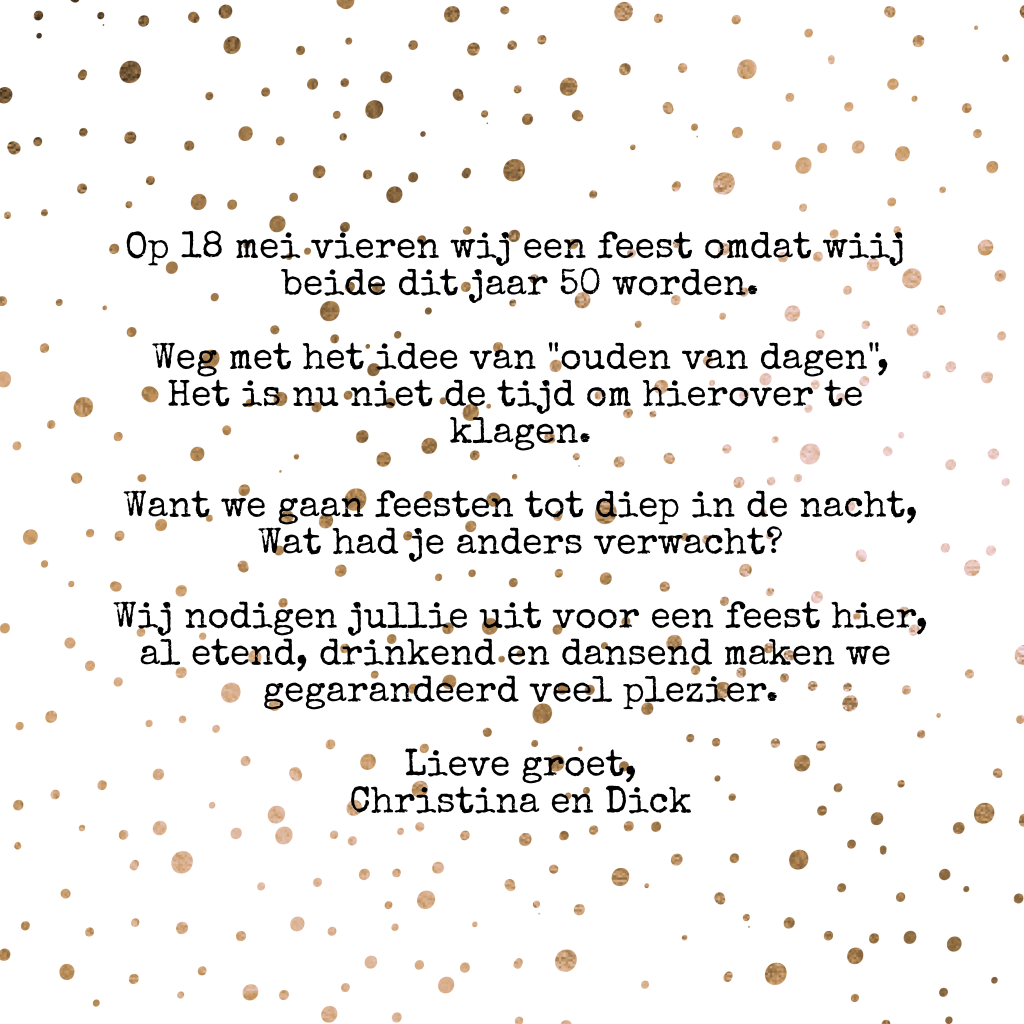 Op 18 mei vieren wij een feest omdat wiij
beide dit jaar 50 worden.
Weg met het idee van "ouden van dagen",
Het is nu niet de tijd om hierover te
klagen.
Want we gaan feesten tot diep in de nacht,
Wat had je anders verwacht?
Wij nodigen jullie uit voor een feest hier,
al etend, drinkend en dansend maken we
gegarandeerd veel plezier.
Lieve groet,
Christina en Dick